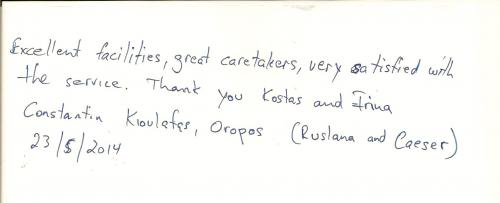 Excellent facilities, great caretakers, very satisfied with
the service. Thank you Kostas and Irina
Constantin Kioulafas, Oropos (Ruslana and Caeser)
23/5/2014